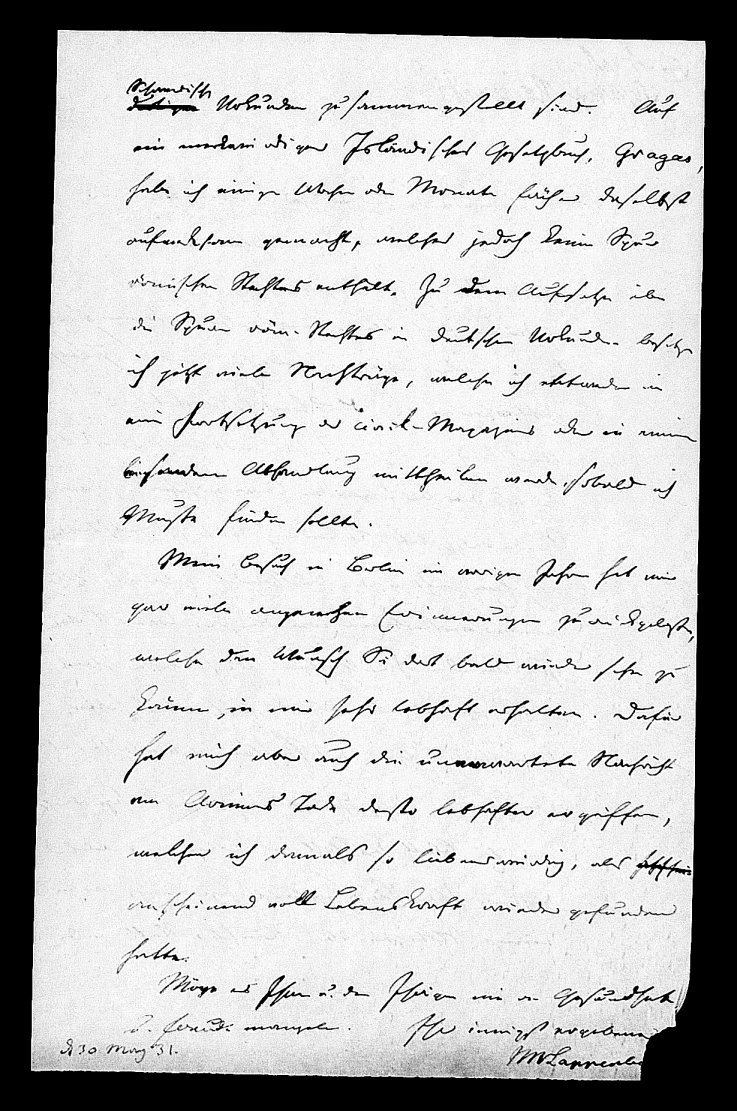 Schwedische
Urkunden zusammengestellt sind. Auf
ein merkwürdiges Isländisches Gesetzbuch, Gragas,
habe ich einige Wochen oder Monate früher daselbst
aufmerksam gemacht, welches jedoch keine Spur
römischen Rechtes enthält. Zu dem Aufsatze über
die Spuren röm. Rechtes in deutschen Urkunden besitze
ich jetzt viele Nachträge, welche ich entweder in
einer Fortsetzung des Civil-Magazins oder in einer
besondern Abhandlung mittheilen werde, sobald ich
Muße finden sollte.
Mein Besuch in Berlin im vorigen Jahre hat mir
gar viele angenehme Erinnerungen zurückgelassen,
welche den Wunsch Sie dort bald wieder sehn zu
können, in mir sehr lebhaft erhalten. Dafür
hat mich aber auch die unerwartete Nachricht
von Tode desto lebhafter ergriffen,
welchen ich damals so liebenswürdig, als
anscheinend voll Lebenskraft wieder gefunden
hatte.
Möge es Ihnen u. den Ihrigen nie an Gesundheit
u. Freude mangeln. Ihr innigst ergebener
d 30 May 31.